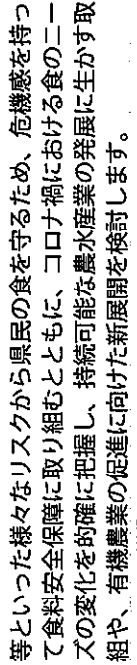 等といった様々なリスクから県民の食を守るため、危機感を持っ
て食料安全保障に取り組むとともに、コロナ禍における食のニー
ズの変化を的確に把握し、持続可能な農水産業の発展に生かす取
組や、有機農業の促進に向けた新展開を検討します。